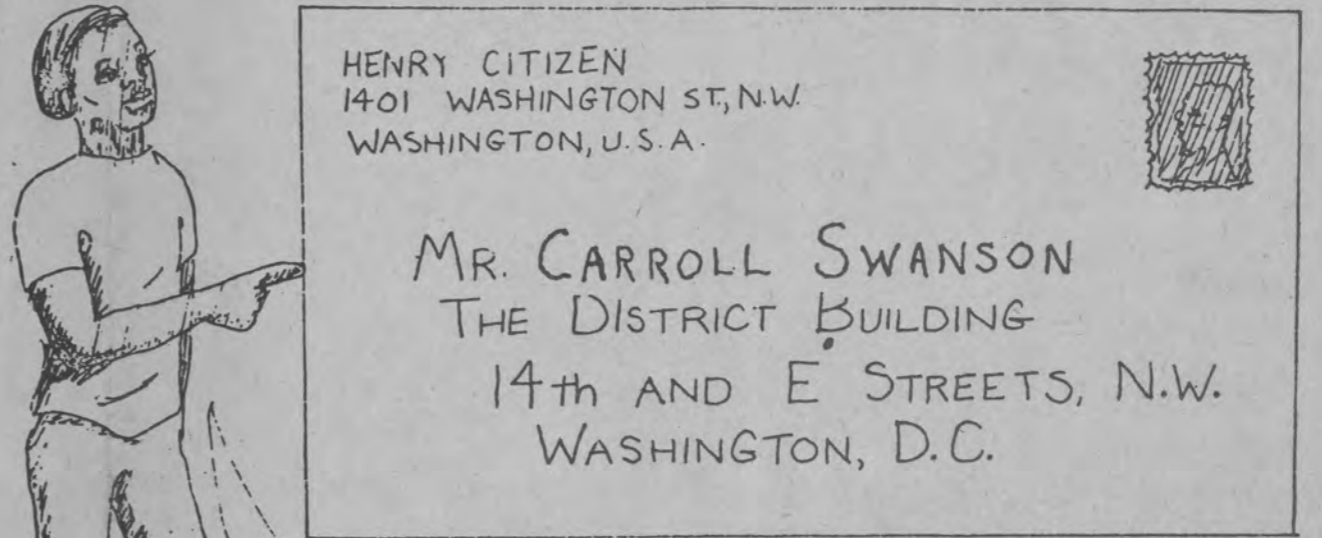 HENRY CITIZEN
1401 WASHINGTON ST., N.W.
WASHINGTON, U.S.A.
MR. CARROLL SWANSON
THE DISTRICT BUILDING
14th AND E STREETS, N.W.
WASHINGTON, D.C.